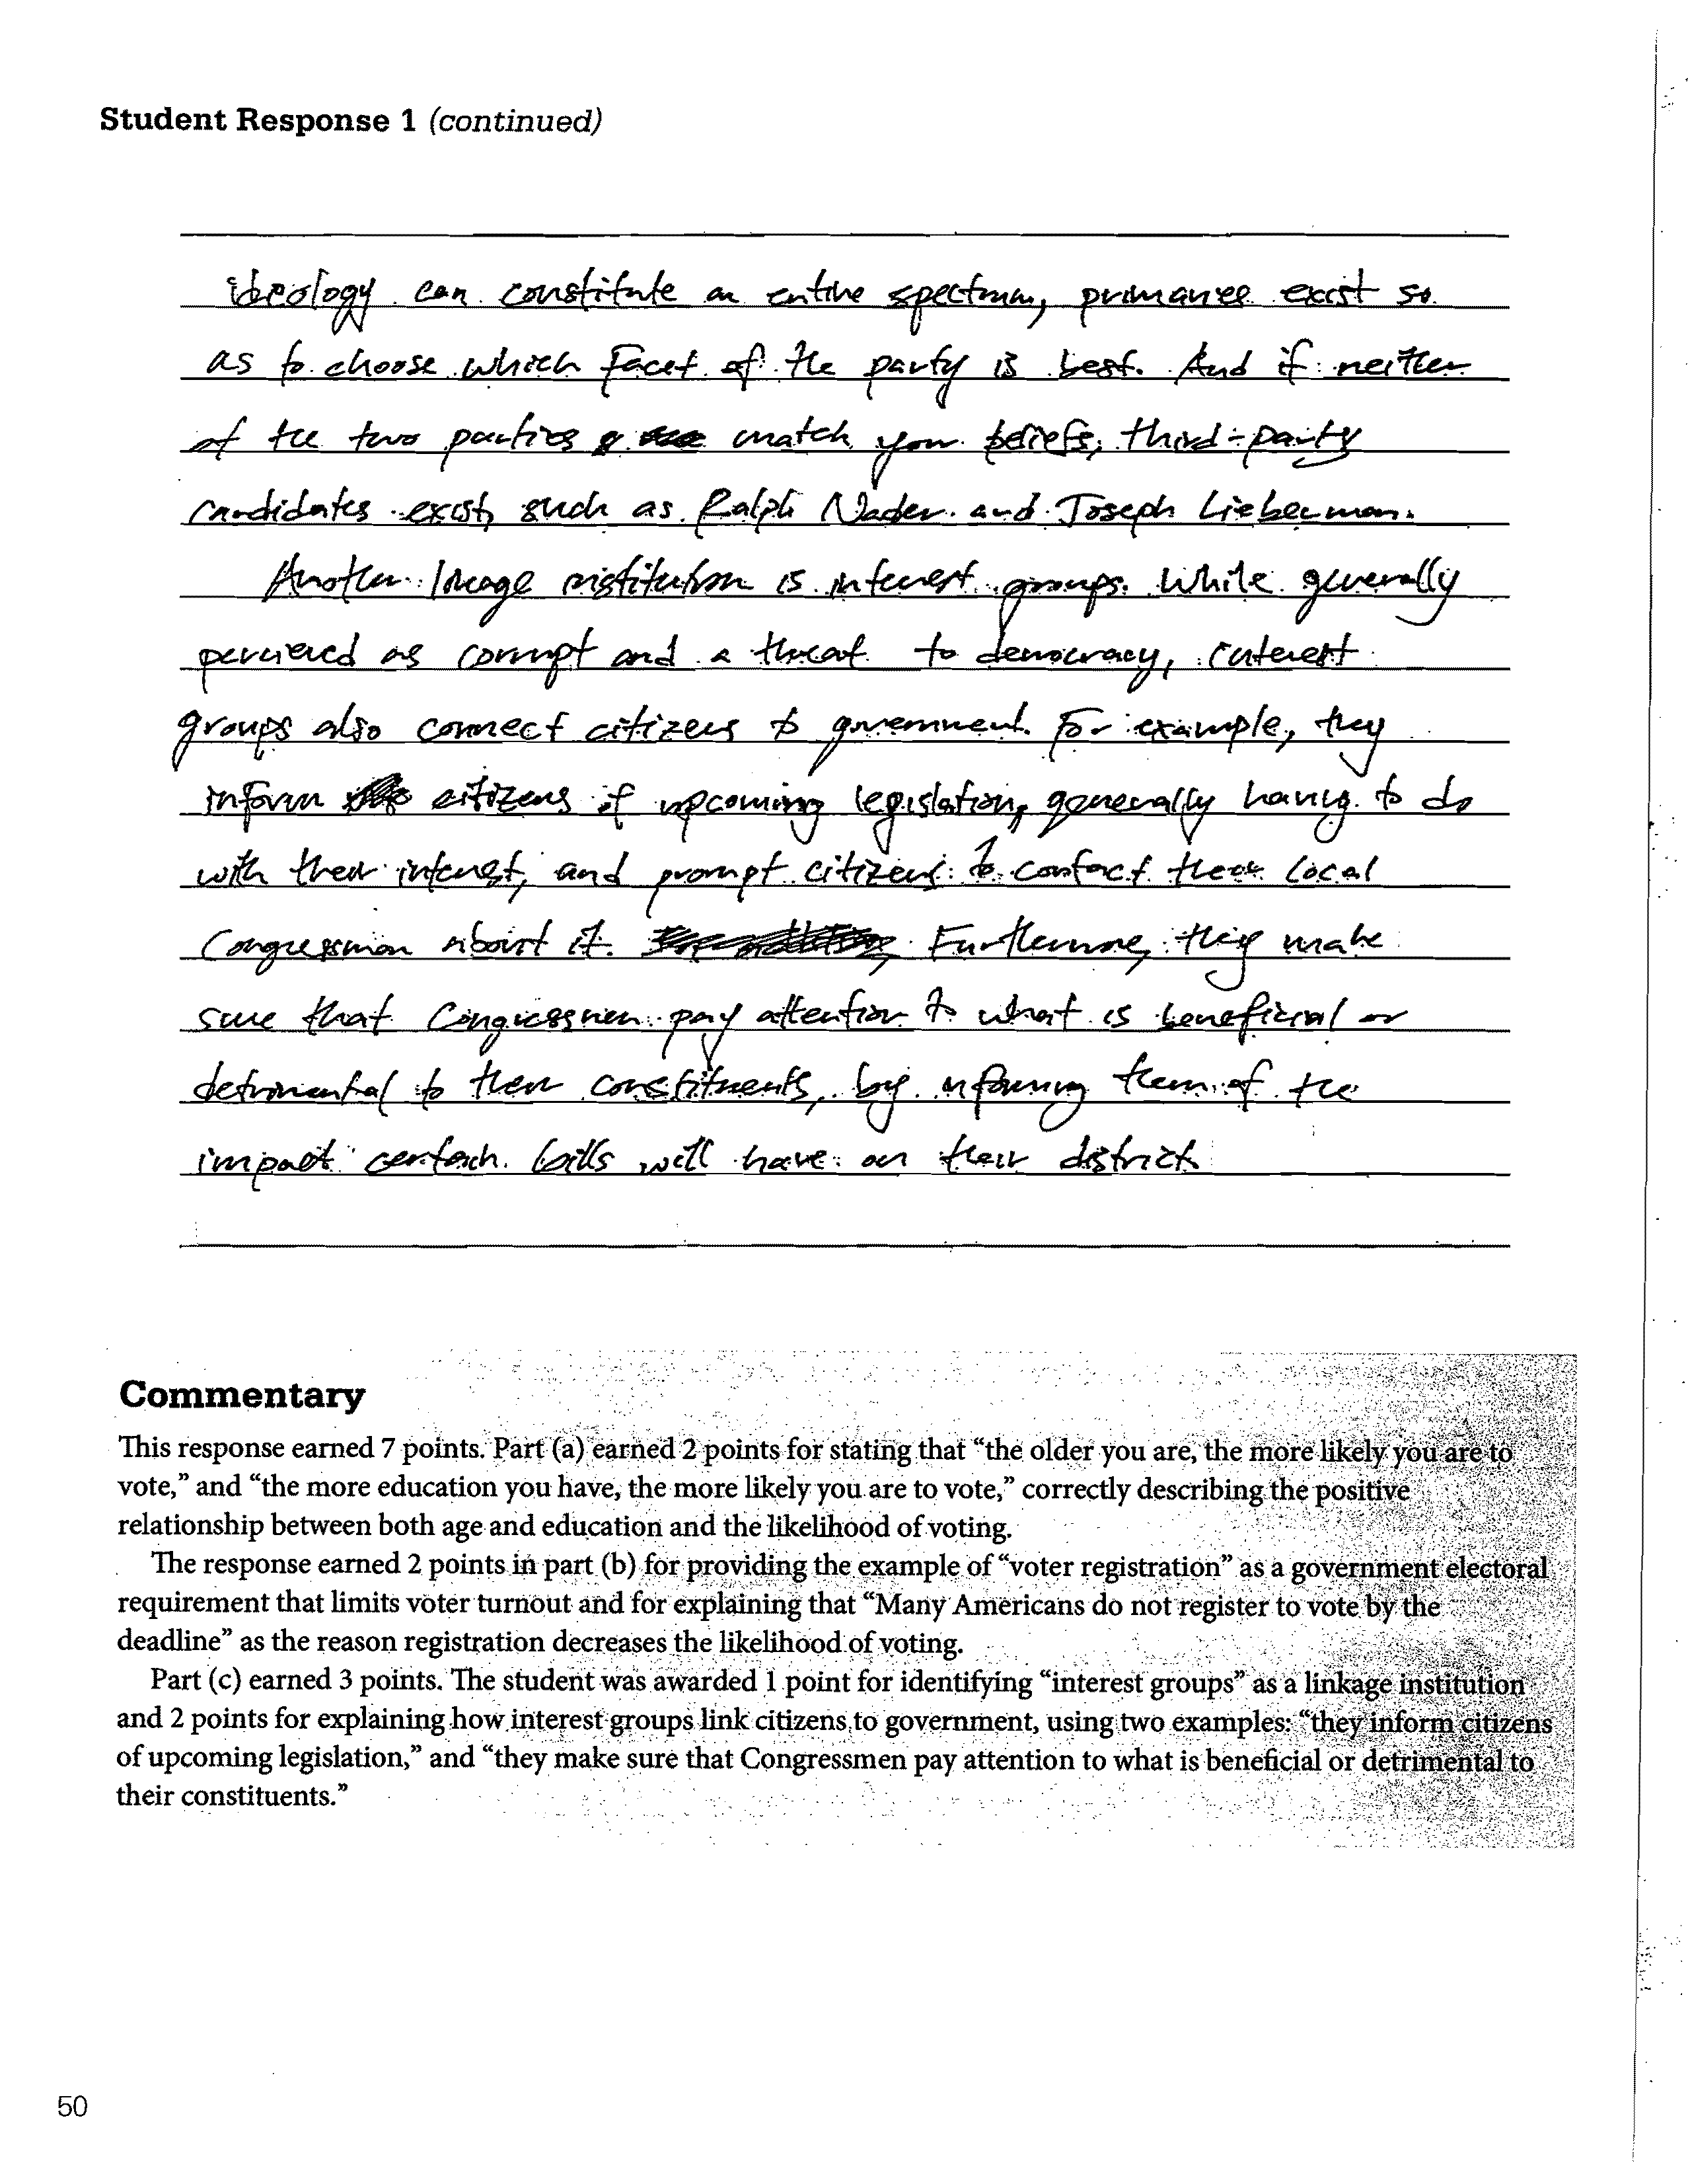 Student Response 1 (continued)
ideology can constitute an entire spectrum, primaries exist so
as to choose which facet of the party is best. And if neither
of the two parties match your beliefs, third-party
candidates exist, such as Ralph Nader and Joseph Lieberman.
Another linkage institution is interest groups. While generally
percieved as corrupt and a threat to democracy, interest
groups also connect citizens to government. For example, they
inform citizens of upcoming legislation, generally having to do
with their interest, and prompt citizens to contact their local
Congressman about it. Furthermore, they make
sure that Congressmen pay attention to what is beneficial or
detrimental to their constituents, by informing them of the
impact certain bills will have on their district.
Commentary
This response earned 7 points. Part (a) earned 2 points for stating that “the older you are, the more likely you are to
vote,” and “the more education you have, the more likely you are to vote,” correctly describing the positive
relationship between both age and education and the likelihood of voting.
The response earned 2 points in part (b) for providing the example of “voter registration” as a government electoral
requirement that limits voter turnout and for explaining that “Many Americans do not register to vote by the
deadline” as the reason registration decreases the likelihood of voting.
Part (c) earned 3 points. The student was awarded 1 point for identifying “interest groups” as a linkage institution
and 2 points for explaining how interest groups link citizens to government, using two examples: “they inform citizens
of upcoming legislation,” and “they make sure that Congressmen pay attention to what is beneficial or detrimental to
their constituents.”
50